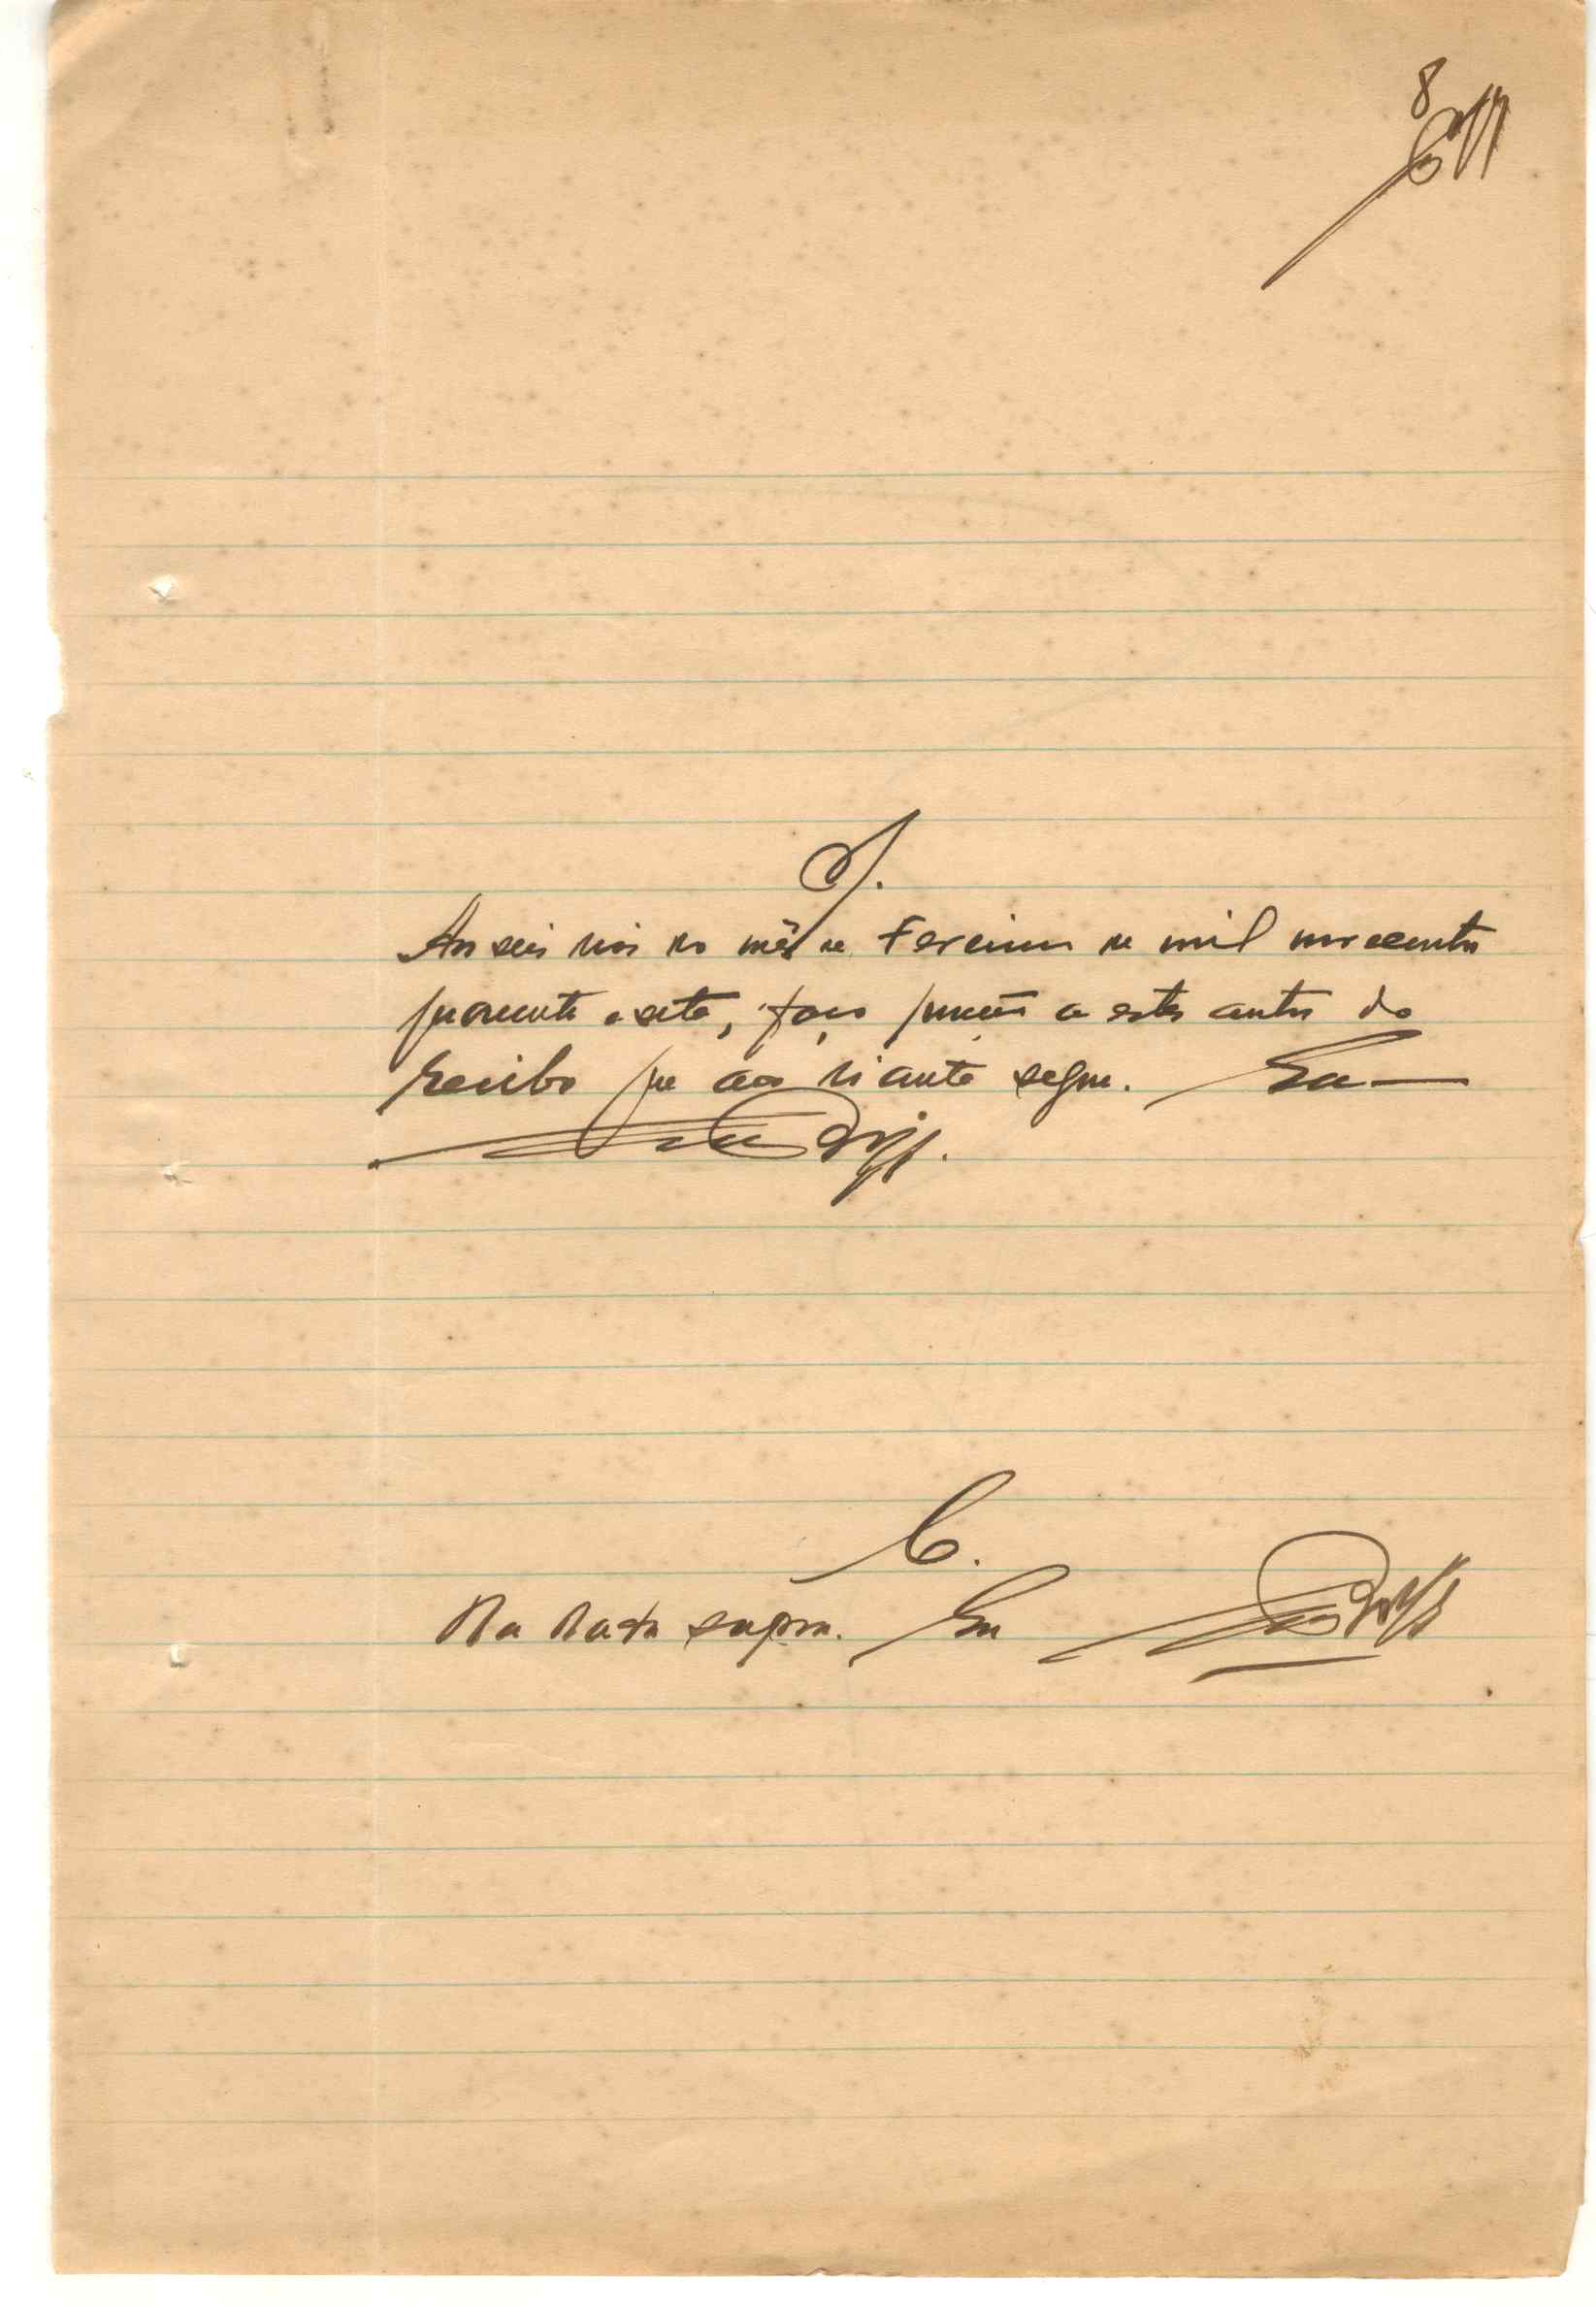 8
J.
Aos seis dias do mês de Fevereiro de mil novecentos
quarenta e sete, faço junção a estes autos do
recibo que ao diante segue. Eu
C.
Na data supra. Eu